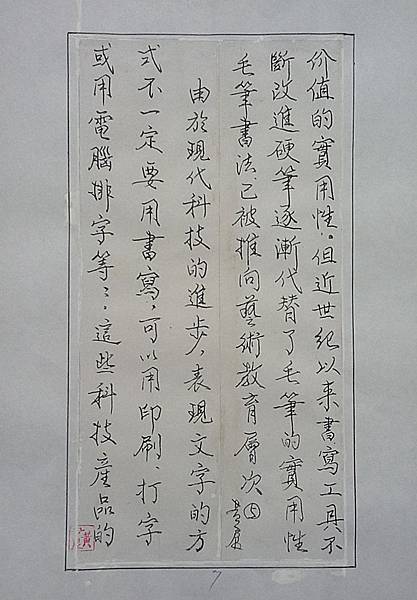 价值的實用性。但近世纪以来書寫工具不
斷改進硬筆逐漸代替了毛筆的實用性
毛筆書法已被推向藝術教育層次⑤
由於現代科技的進步，表現文字的方
式不一定要用書寫，可以用印刷、打字
或用電腦排字等：。這些科技產品的
黃
7